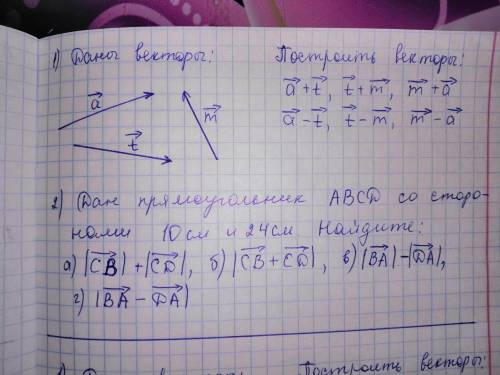 1) Даны векторы: Построить векторы:
a⃗ m⃗ a⃗+t⃗, t⃗+m⃗, m⃗+a⃗
t⃗ a⃗-t⃗, t⃗-m⃗, m⃗-a⃗
2) Дан прямоугольник ABCD со сторо-
нами 10 см и 24 см. Найдите:
а) |CB⃗|+|CD⃗|, б) |CB⃗+CD⃗|, в) |BA⃗|-|DA⃗|,
г) |BA⃗-DA⃗|
Построить векторы: